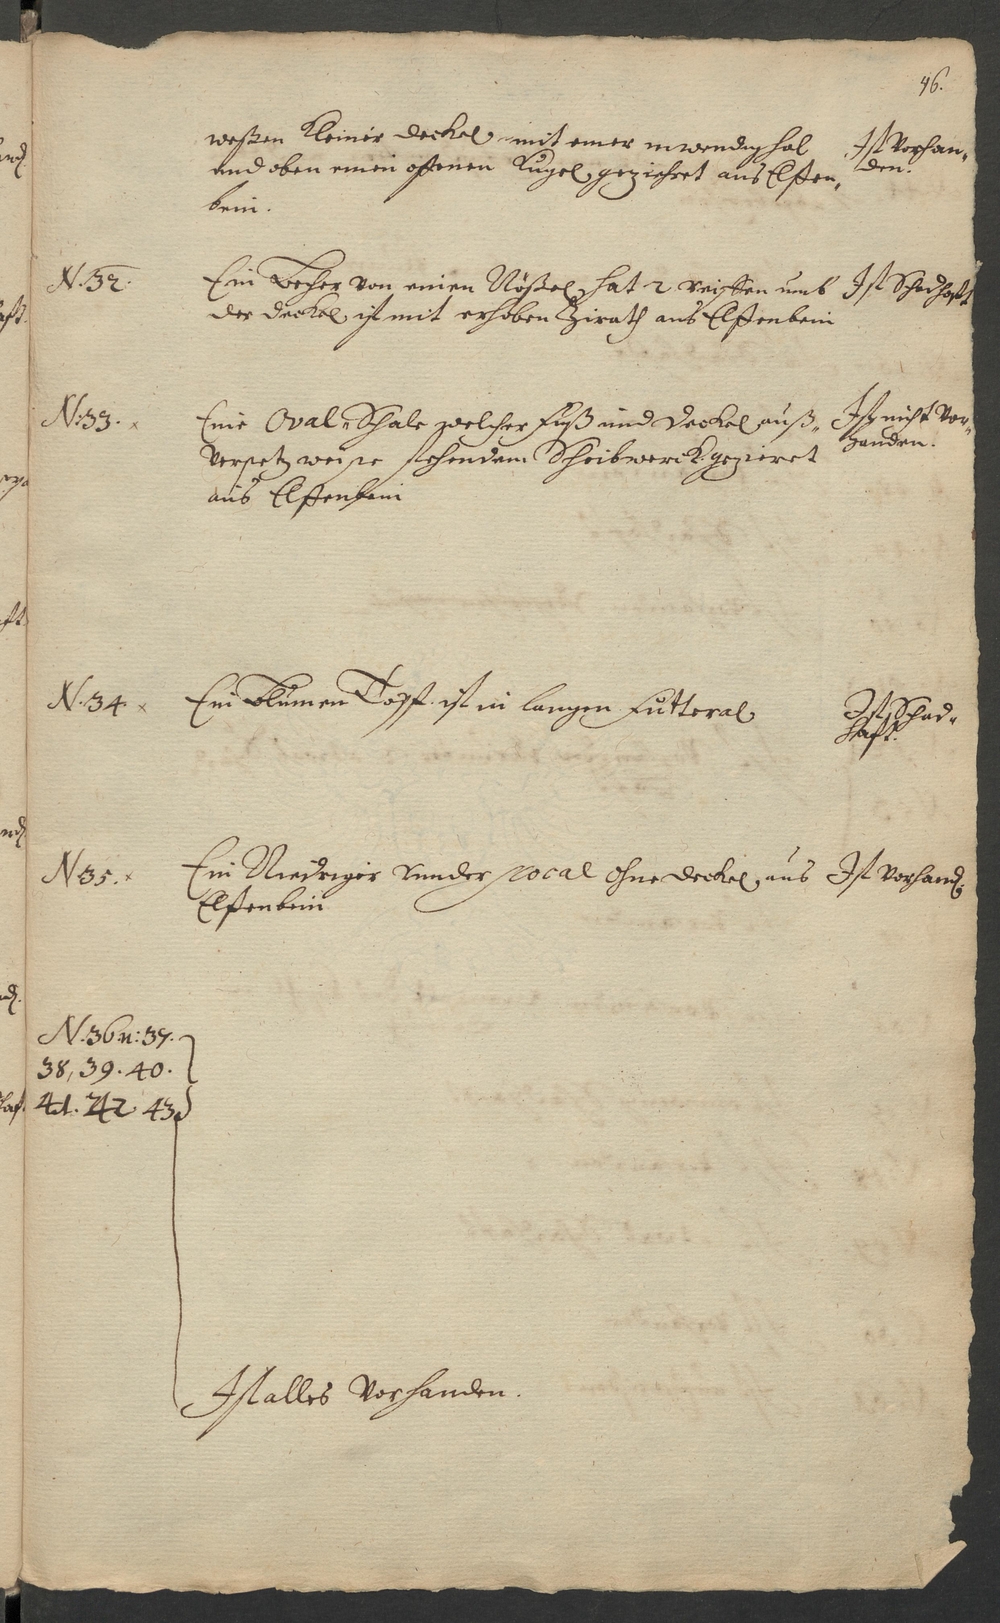 46.
weßen Kleiner deckel, mit einer inwendig hol
und oben einen offenen Kugel, geziehret aus Elffen-
bein.
Ist Vorhan-
den.
N. 32.
Ein Becher von einen Nößel, hat 2 reiffen umb
der deckel, ist mit erhoben Zirath aus Elffenbein
Ist Schadhafft
N: 33. x
Eine Oval-Schale welcher Fuß und deckel auß-
Versetz weise stehendem Scheibwerck gezieret
aus Elffenbein
Ist nicht Vor-
handen.
N. 34. x
Ein Blumen Topff ist in langen Futteral
Ist Schad-
hafft.
N 35. x
Ein Niedriger runder pocal ohne deckel, aus
Elffenbein
Ist Vorhand.
N. 36 n: 37.
38, 39. 40.
41. 42 43
Ist alles Vorhanden.